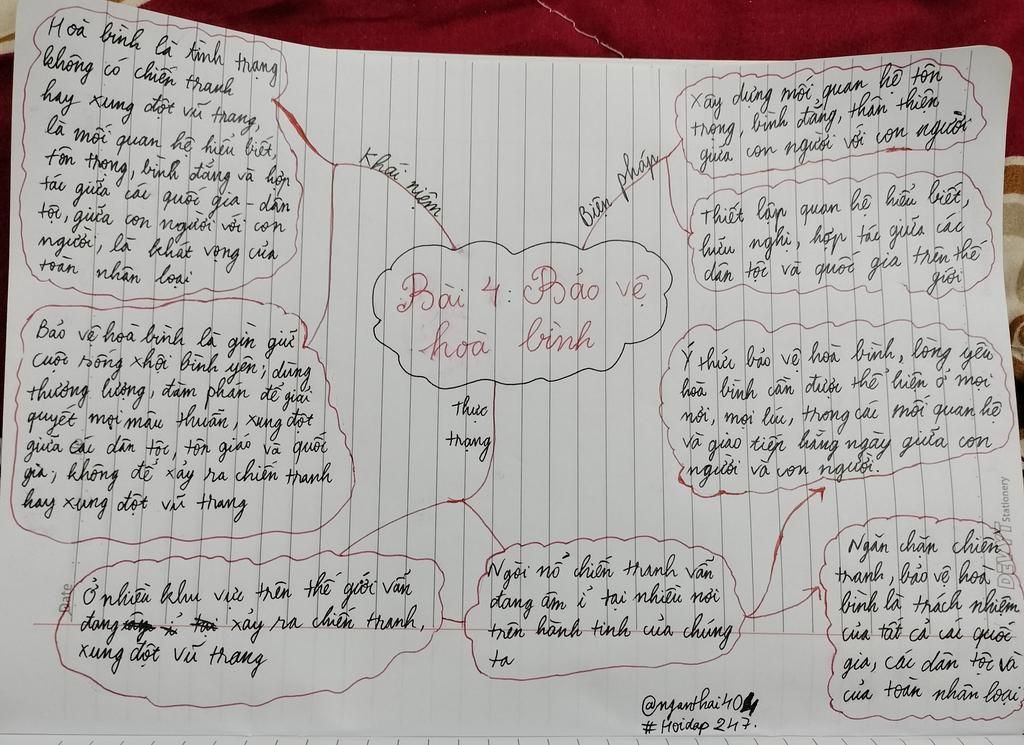 Bài 4: Bảo vệ
hoà bình
Khái niệm
Hoà bình là tình trạng
không có chiến tranh
hay xung đột vũ trang,
là mối quan hệ hiểu biết,
tôn trọng, bình đẳng và hợp
tác giữa các quốc gia - dân
tộc, giữa con người với con
người, là khát vọng của
toàn nhân loại
Bảo vệ hoà bình là gìn giữ
cuộc sống xhội bình yên; dùng
thương lượng, đàm phán để giải
quyết mọi mâu thuẫn, xung đột
giữa các dân tộc, tôn giáo và quốc
gia; không để xảy ra chiến tranh
hay xung đột vũ trang
Biện pháp
Xây dựng mối quan hệ tôn
trọng, bình đẳng, thân thiện
giữa con người với con người
Thiết lập quan hệ hiểu biết,
hữu nghị, hợp tác giữa các
dân tộc và quốc gia trên thế
giới
thực
trạng
Ở nhiều khu vực trên thế giới vẫn
đang xảy ra chiến tranh,
xung đột vũ trang
Ngòi nổ chiến tranh vẫn
đang âm ỉ tại nhiều nơi
trên hành tinh của chúng
ta
Ý thức bảo vệ hoà bình, lòng yêu
hoà bình cần được thể hiện ở mọi
nơi, mọi lúc, trong các mối quan hệ
và giao tiếp hằng ngày giữa con
người và con người.
Ngăn chặn chiến
tranh, bảo vệ hoà
bình là trách nhiệm
của tất cả các quốc
gia, các dân tộc và
của toàn nhân loại
@nganthai404
# Hoidap 247.
Date
Stationery